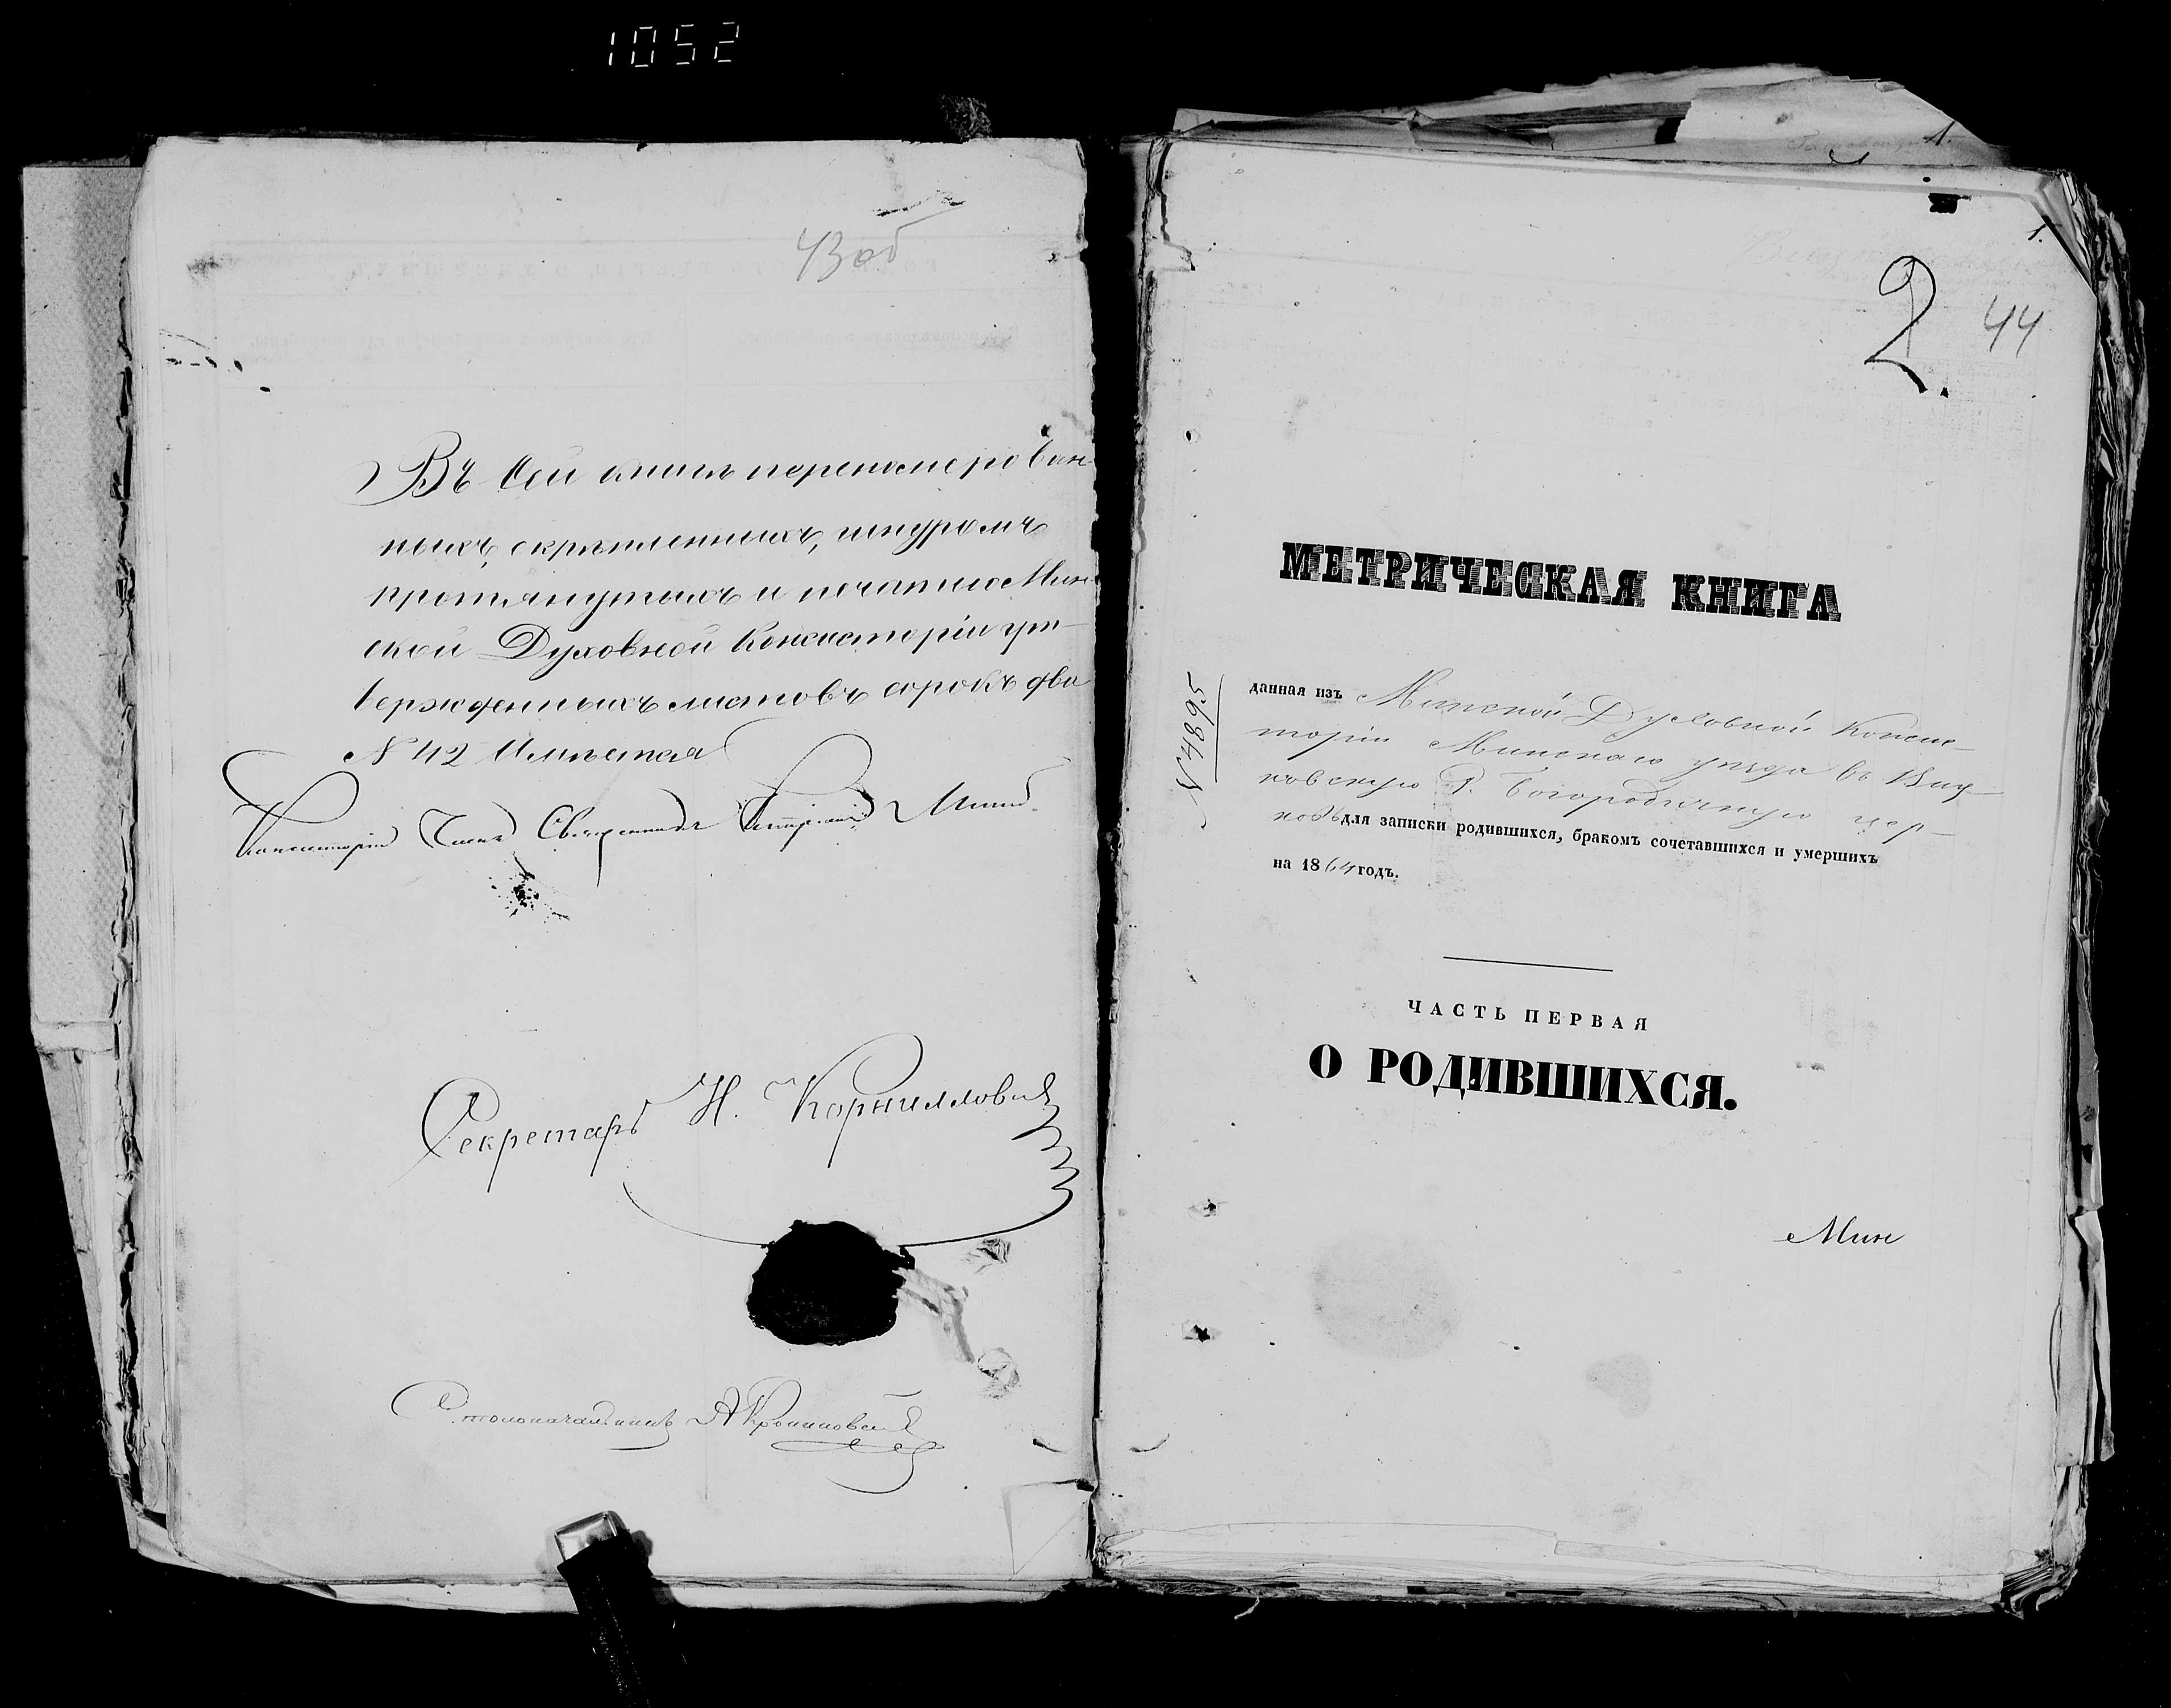 1052
43 об
Въ сей книгѣ перенумерован-
ныхъ, скрѣпленныхъ, шнуромъ
протянутыхъ и печатью Мин-
ской Духовной Консисторіи ут-
вержденныхъ листовъ сорокъ два
N 42 Имѣется
Консисторіи Членъ Священникъ
Секретарь Н. Корниллович
Столоначальникъ А
1.
2. 44
МЕТРИЧЕСКАЯ КНИГА
N 4895
данная изъ Минской Духовной Консис-
торіи Минскаго уѣзда въ
Р. Богородичную цер-
ковь для записки родившихся, бракомъ сочетавшихся и умершихъ
на 1864 годъ.
ЧАСТЬ ПЕРВАЯ
О РОДИВШИХСЯ.
Мин